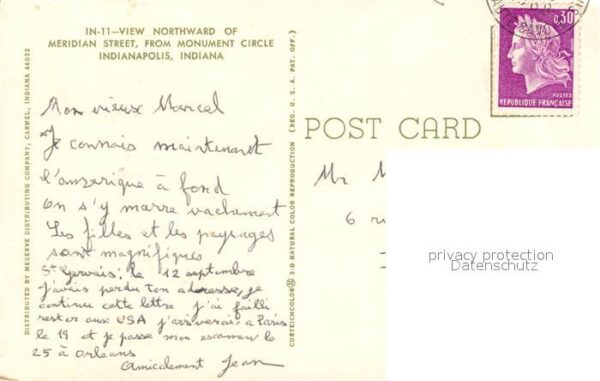 IN-11—VIEW NORTHWARD OF
MERIDIAN STREET, FROM MONUMENT CIRCLE
INDIANAPOLIS, INDIANA
DISTRIBUTED BY MESERVE DISTRIBUTING COMPANY, CARMEL, INDIANA 46032
Mon vieux Marcel
Je connais maintenant
l'amérique à fond
on s'y marre vachement
Les filles et les paysages
sont magnifiques
St Gervais, le 12 septembre
j'avais perdu ton adresse, je
continue cette lettre j'ai failli
rester aux USA j'arriverai à Paris
le 19 et je passe mon examen le
25 à Orleans
Amicalement Jean
CURTEICHCOLOR® 3-D NATURAL COLOR REPRODUCTION (REG. U. S. A. PAT. OFF.)
POST CARD
0,30
POSTES
REPUBLIQUE FRANÇAISE
Mr M
6 r
privacy protection
Datenschutz